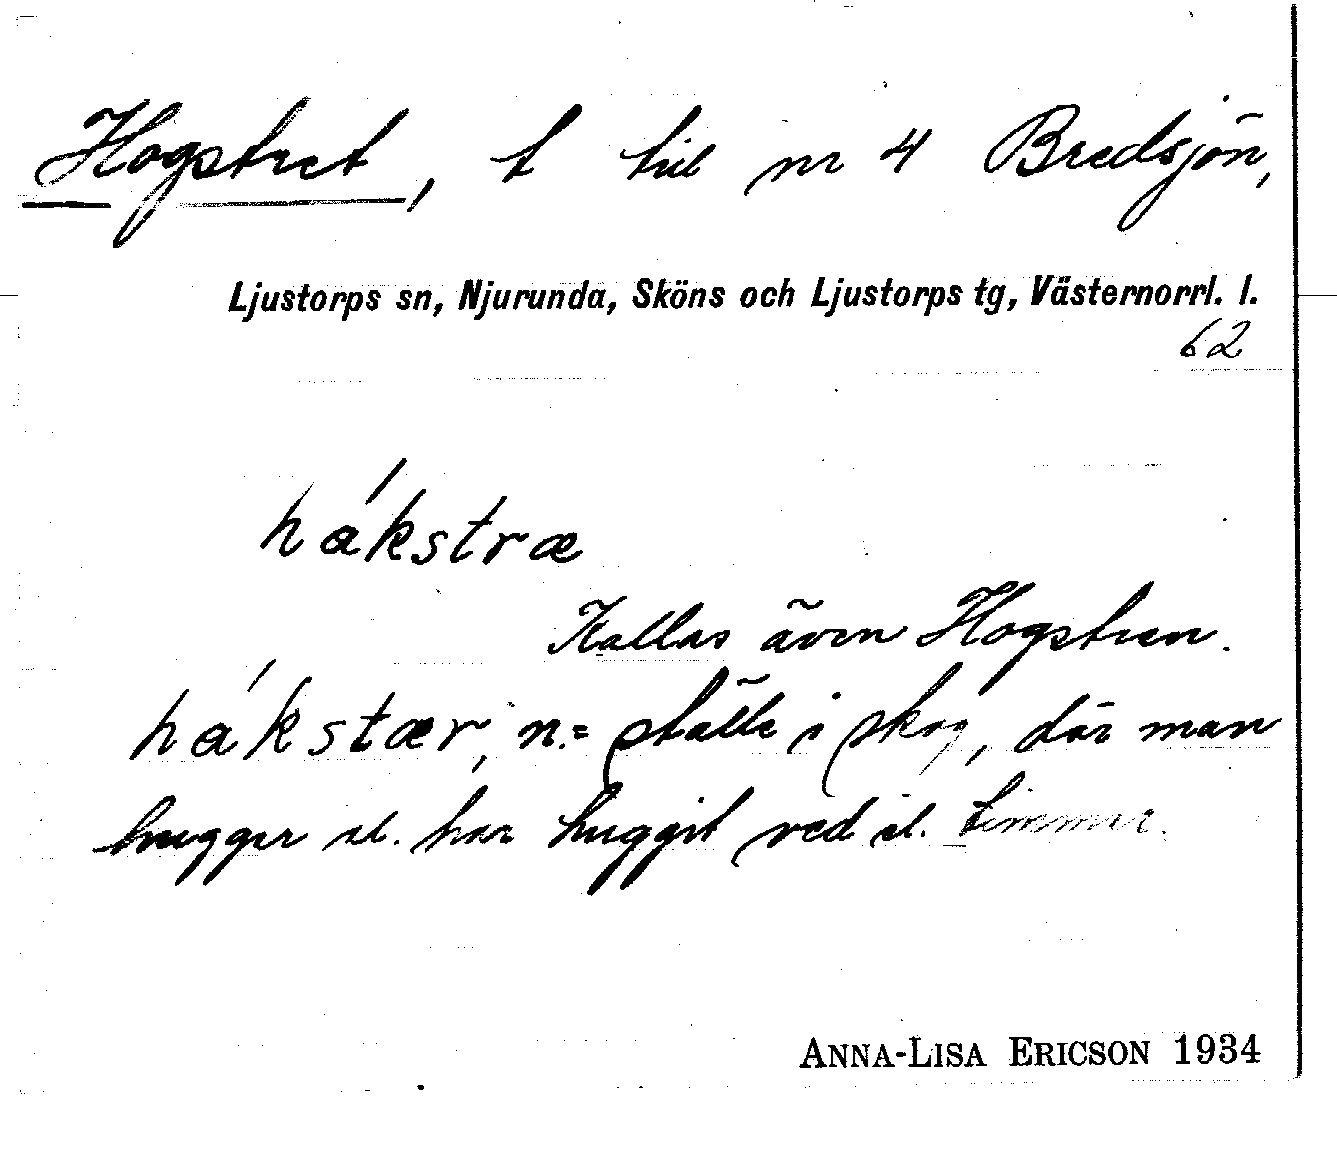 Hogstret, t till nr 4 Bredsjön,
Ljustorps sn, Njurunda, Sköns och Ljustorps tg, Västernorrl. l.
62
hákstræ
Kallas även Hogstren.
hákstær, n. = ställe i skog, där man
hugger el. har huggit ved el. timmer.
ANNA-LISA ERICSON 1934